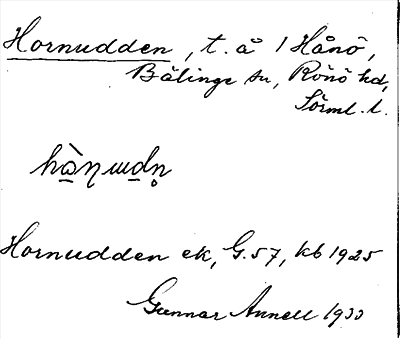 Hornudden, t. å 1 Hånö,
Bälinge sn, Rönö hd,
Sörml. l.
hὰ̱ŋɯd̥n̥
Hornudden ek, G.57, kb 1925
Gunnar Annell 1933